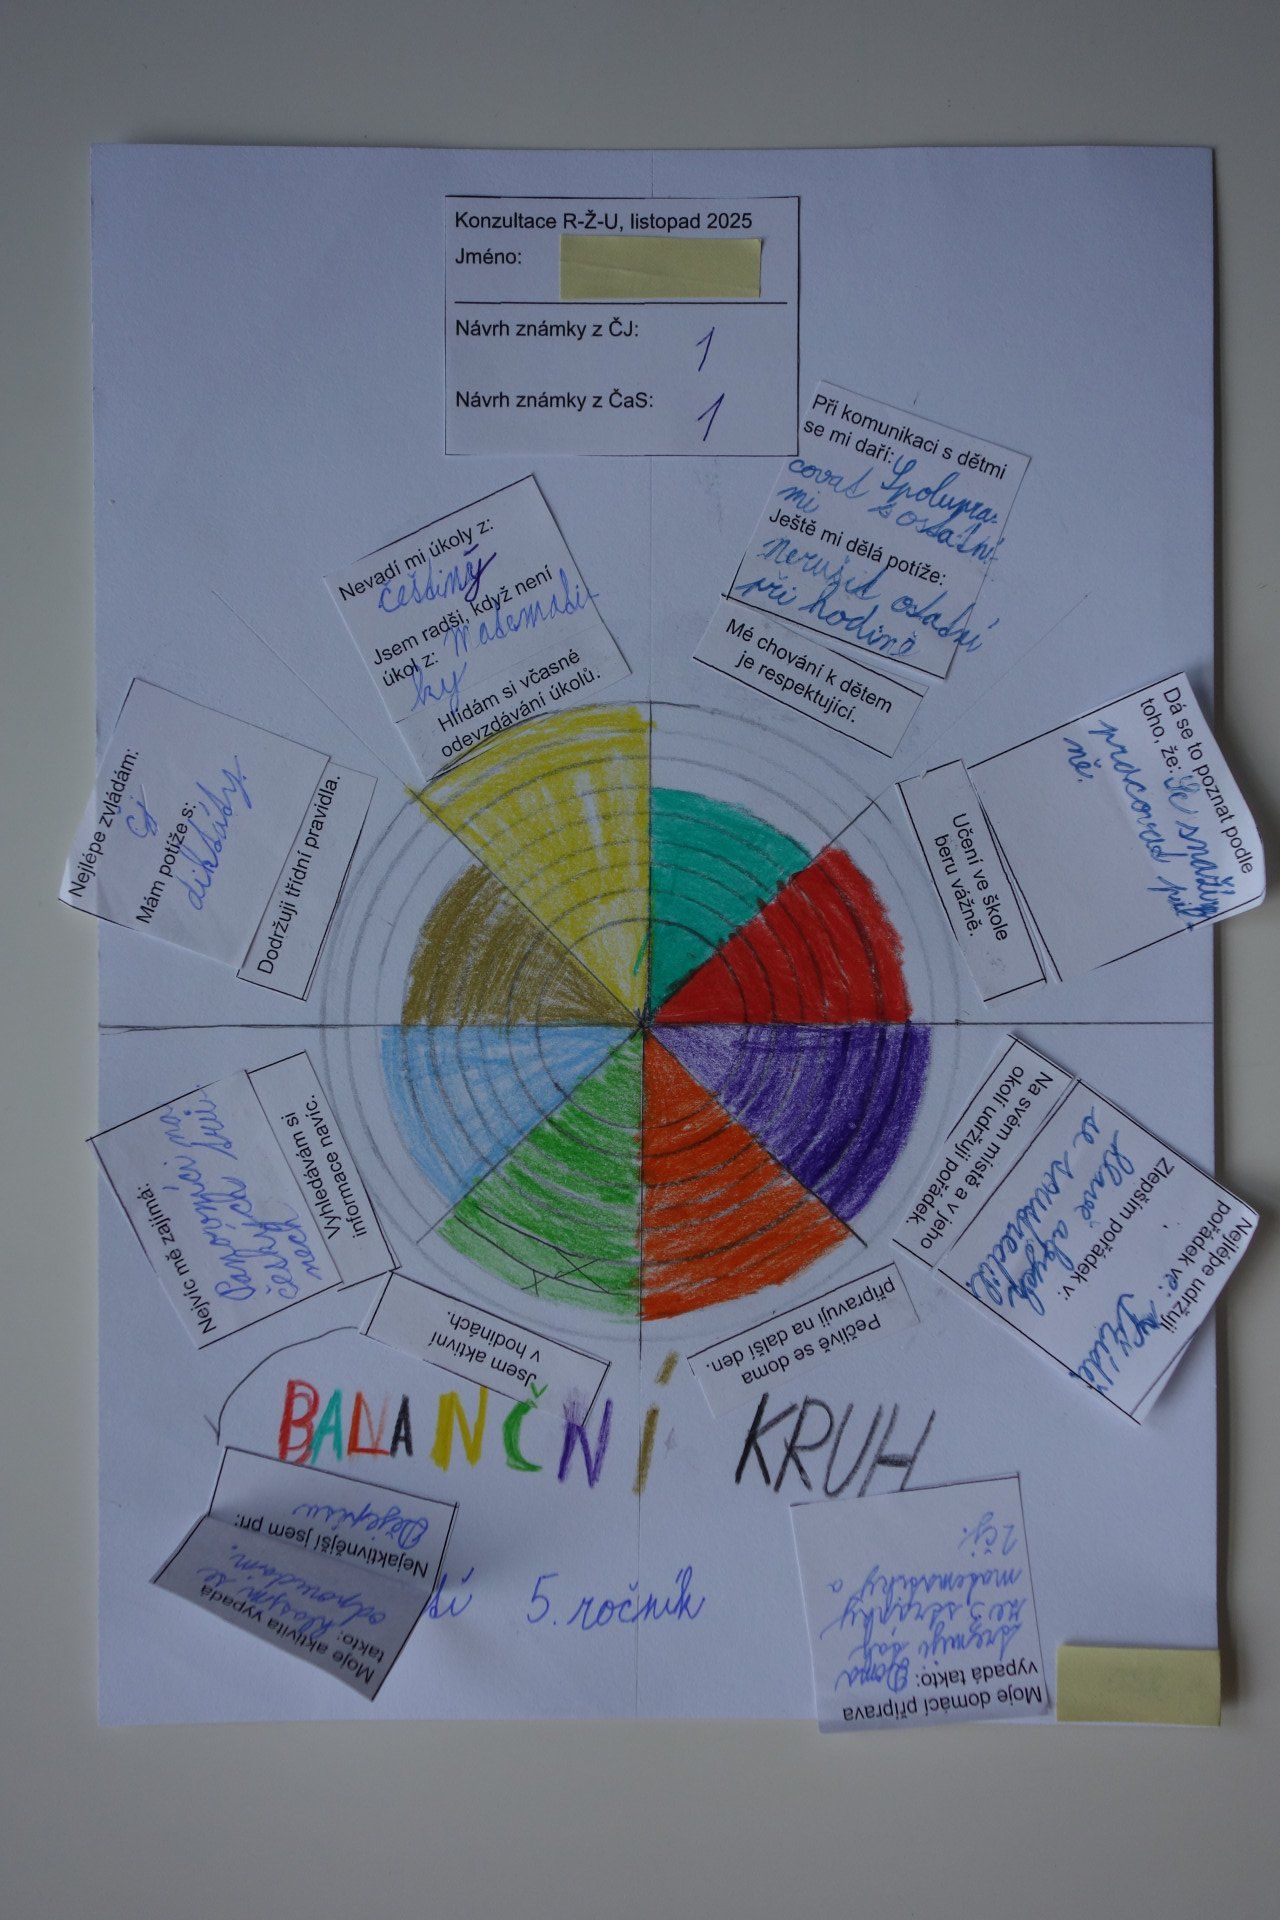 Konzultace R-Ž-U, listopad 2025
Jméno:
Návrh známky z ČJ: 1
Návrh známky z ČaS: 1
Při komunikaci s dětmi
se mi daří: Spolupra-
covat s ostatní-
mi
Ještě mi dělá potíže:
nerušit ostatní
při hodině
Mé chování k dětem
je respektující.
Dá se to poznat podle
toho, že: Se snažím
pracovat pil-
ně.
Učení ve škole
beru vážně.
Nejlépe udržuji
pořádek ve: třídě
Zlepším pořádek v:
hlavě abych
se soustředil
Na svém místě a v jeho
okolí udržuji pořádek.
Pečlivě se doma
připravuji na další den.
Moje domácí příprava
vypadá takto: Doma
trénuji tak
ne 3 stránky
matematiky a
2 čj.
Jsem aktivní
v hodinách.
Moje aktivita vypadá
takto: hlásím se
odpovedam.
Nejaktivnější jsem při:
Dějepisu
Nejvíc mě zajímá:
české
Vyhledávám si
informace navíc.
Nejlépe zvládám:
čj
Mám potíže s:
diktáty.
Dodržuji třídní pravidla.
Nevadí mi úkoly z:
češtiny
Jsem radši, když není
úkol z: Matemati-
ky
Hlídám si včasné
odevzdávání úkolů.
BALANČNÍ KRUH
5. ročník